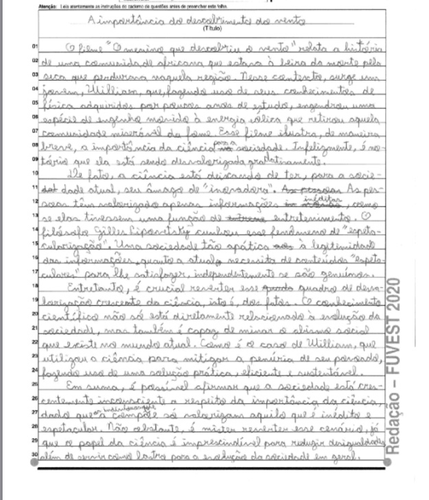 Atenção: Leia atentamente as instruções do caderno de questões antes de preencher esta folha.
A importância do descobrimento do vento
(Título)
01 O filme "O menino que descobriu o vento" relata a história
02 de uma comunidade africana que estava à beira da morte pela
03 seca que perdurava naquela região. Nesse contexto, surge um
04 jovem, William, que, fazendo uso de seus conhecimentos de
05 física adquiridos por poucos anos de estudo, engendrou uma
06 espécie de engenho movido à energia eólica que retirou aquela
07 comunidade miserável da fome. Esse filme ilustra, de maneira
08 breve, a importância da ciência para a sociedade. Infelizmente, é no-
09 tório que ela está sendo desvalorizada gradativamente.
10 De fato, a ciência está deixando de ter, para a socie-
11 dade atual, seu âmago de "inovadora". As pes-
12 soas têm valorizado apenas informações inéditas, como
13 se elas tivessem uma função de entretenimento. O
14 filósofo Gilles Lipovetsky cunhou esse fenômeno de "espeta-
15 cularização". Uma sociedade tão apática à legitimidade
16 das informações quanto a atual necessita de conteúdos "espeta-
17 culares" para lhe satisfazer, independentemente se são genuínos.
18 Entretanto, é crucial reverter esse quadro de desva-
19 lorização crescente da ciência, isto é, dos fatos. O conhecimento
20 científico não só está diretamente relacionado à evolução da
21 sociedade, mas também é capaz de minar o abismo social
22 que existe no mundo atual. Como é o caso de William, que
23 utilizou a ciência para mitigar a penúria de seu povoado,
24 fazendo uso de uma solução prática, eficiente e sustentável.
25 Em suma, é possível afirmar que a sociedade está cres-
26 centemente inconsciente a respeito da importância da ciência,
27 dado que a só valorizam aquilo que é inédito e
28 espetacular. Não obstante, é mister reverter esse cenário, já
29 que o papel da ciência é imprescindível para reduzir desigualdades
30 além de servir como lastro para a evolução da sociedade em geral.
Redação – FUVEST 2020